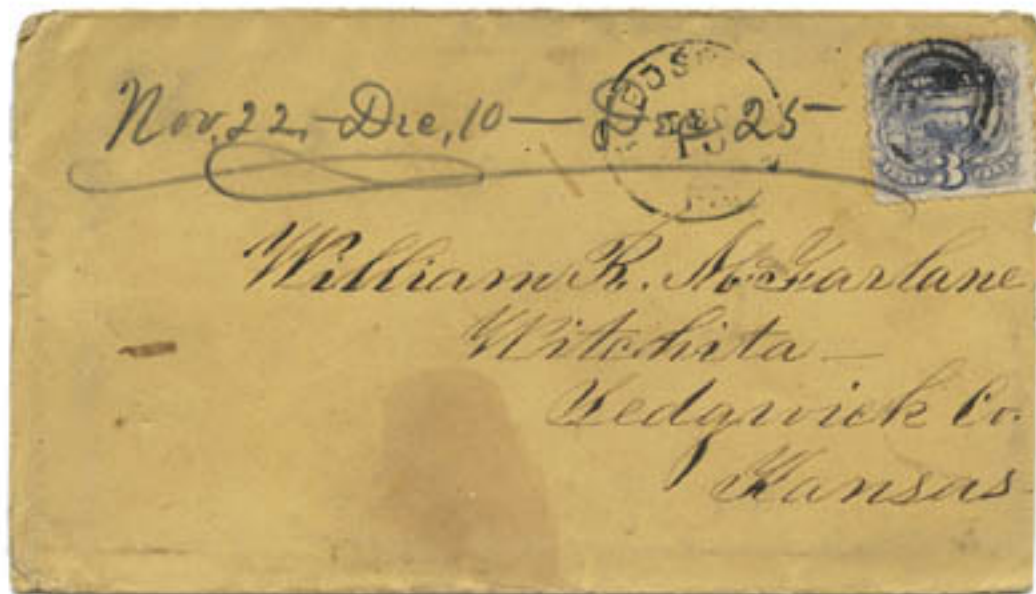 Nov. 22, - Dec, 10 — D 25 -
DEC
3
William R. McFarlane
Witchita —
Sedgwick Co.
Kansas